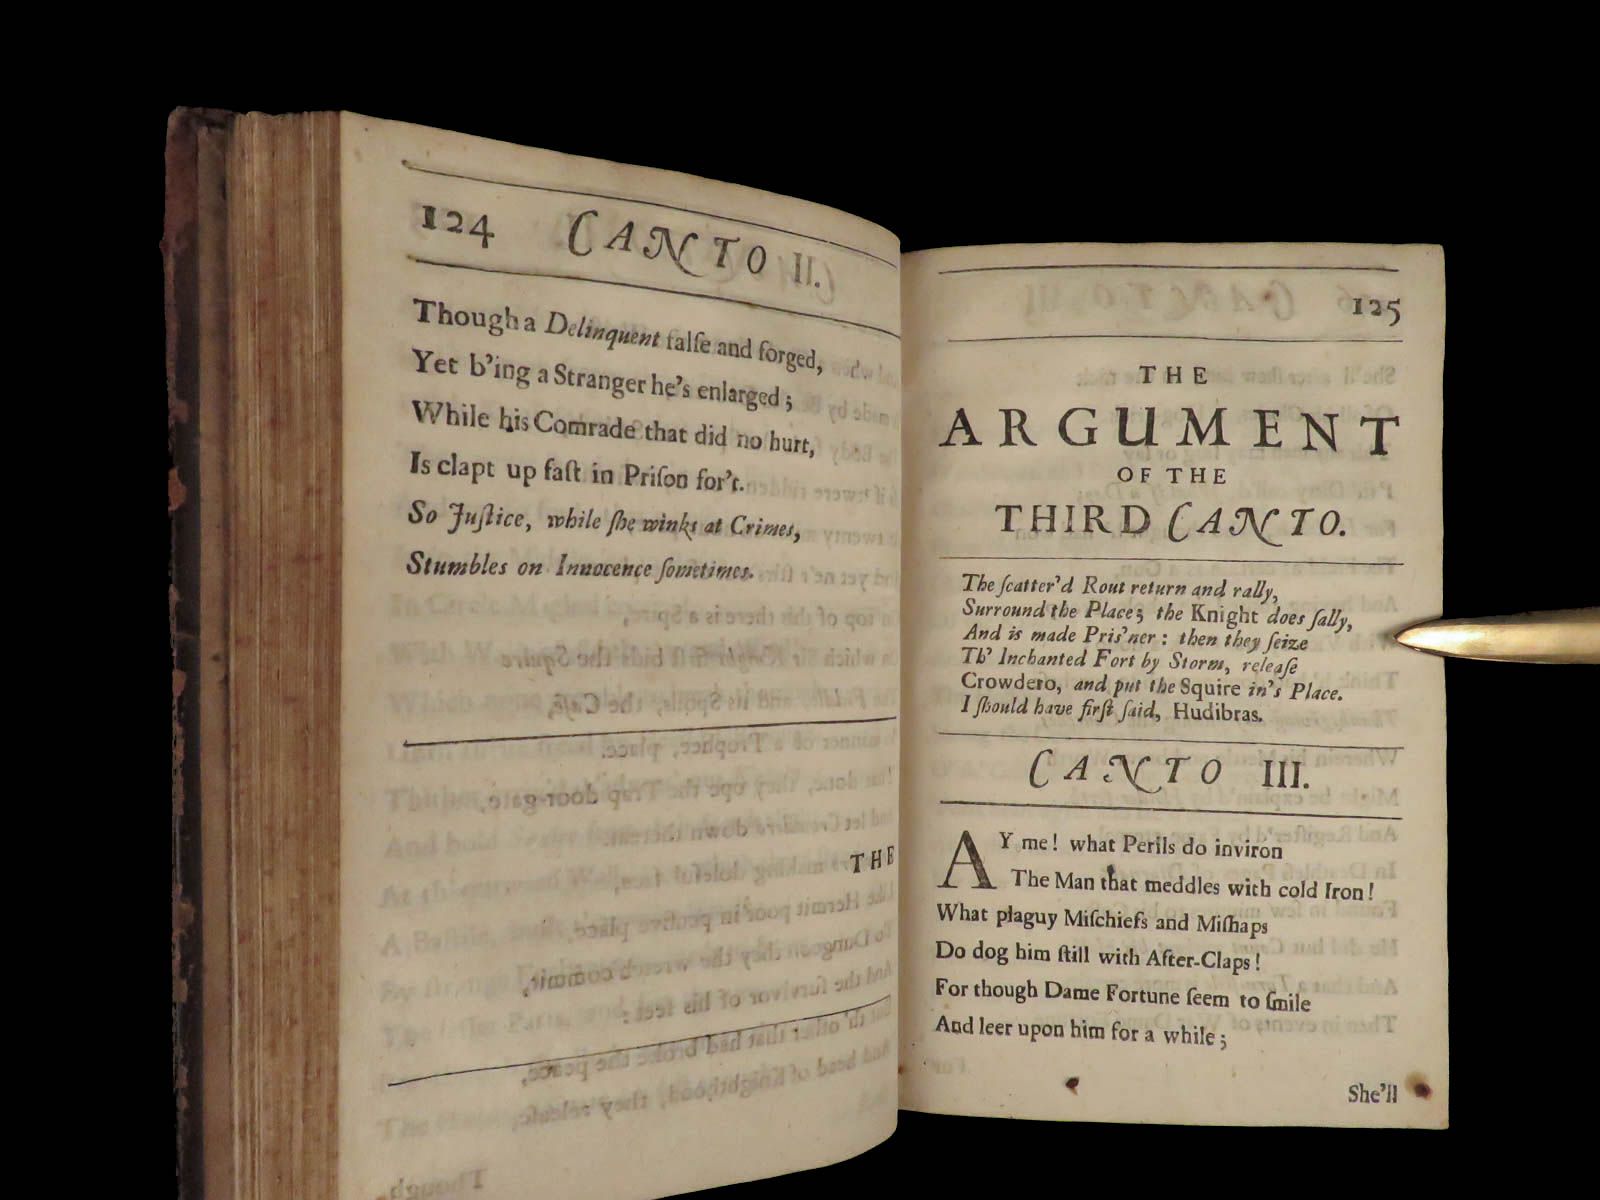 124 CANTO II.
Though a Delinquent falſe and forged,
Yet b'ing a Stranger he's enlarged;
While his Comrade that did no hurt,
Is clapt up faſt in Priſon for't.
So Juſtice, while ſhe winks at Crimes,
Stumbles on Innocence ſometimes.
THE
125
THE
ARGUMENT
OF THE
THIRD CANTO.
The ſcatter'd Rout return and rally,
Surround the Place; the Knight does ſally,
And is made Pris'ner: then they ſeize
Th' Inchanted Fort by Storm, releaſe
Crowdero, and put the Squire in's Place.
I ſhould have firſt ſaid, Hudibras.
CANTO III.
AY me! what Perils do inviron
The Man that meddles with cold Iron!
What plaguy Miſchiefs and Miſhaps
Do dog him ſtill with After-Claps!
For though Dame Fortune ſeem to ſmile
And leer upon him for a while;
She'll